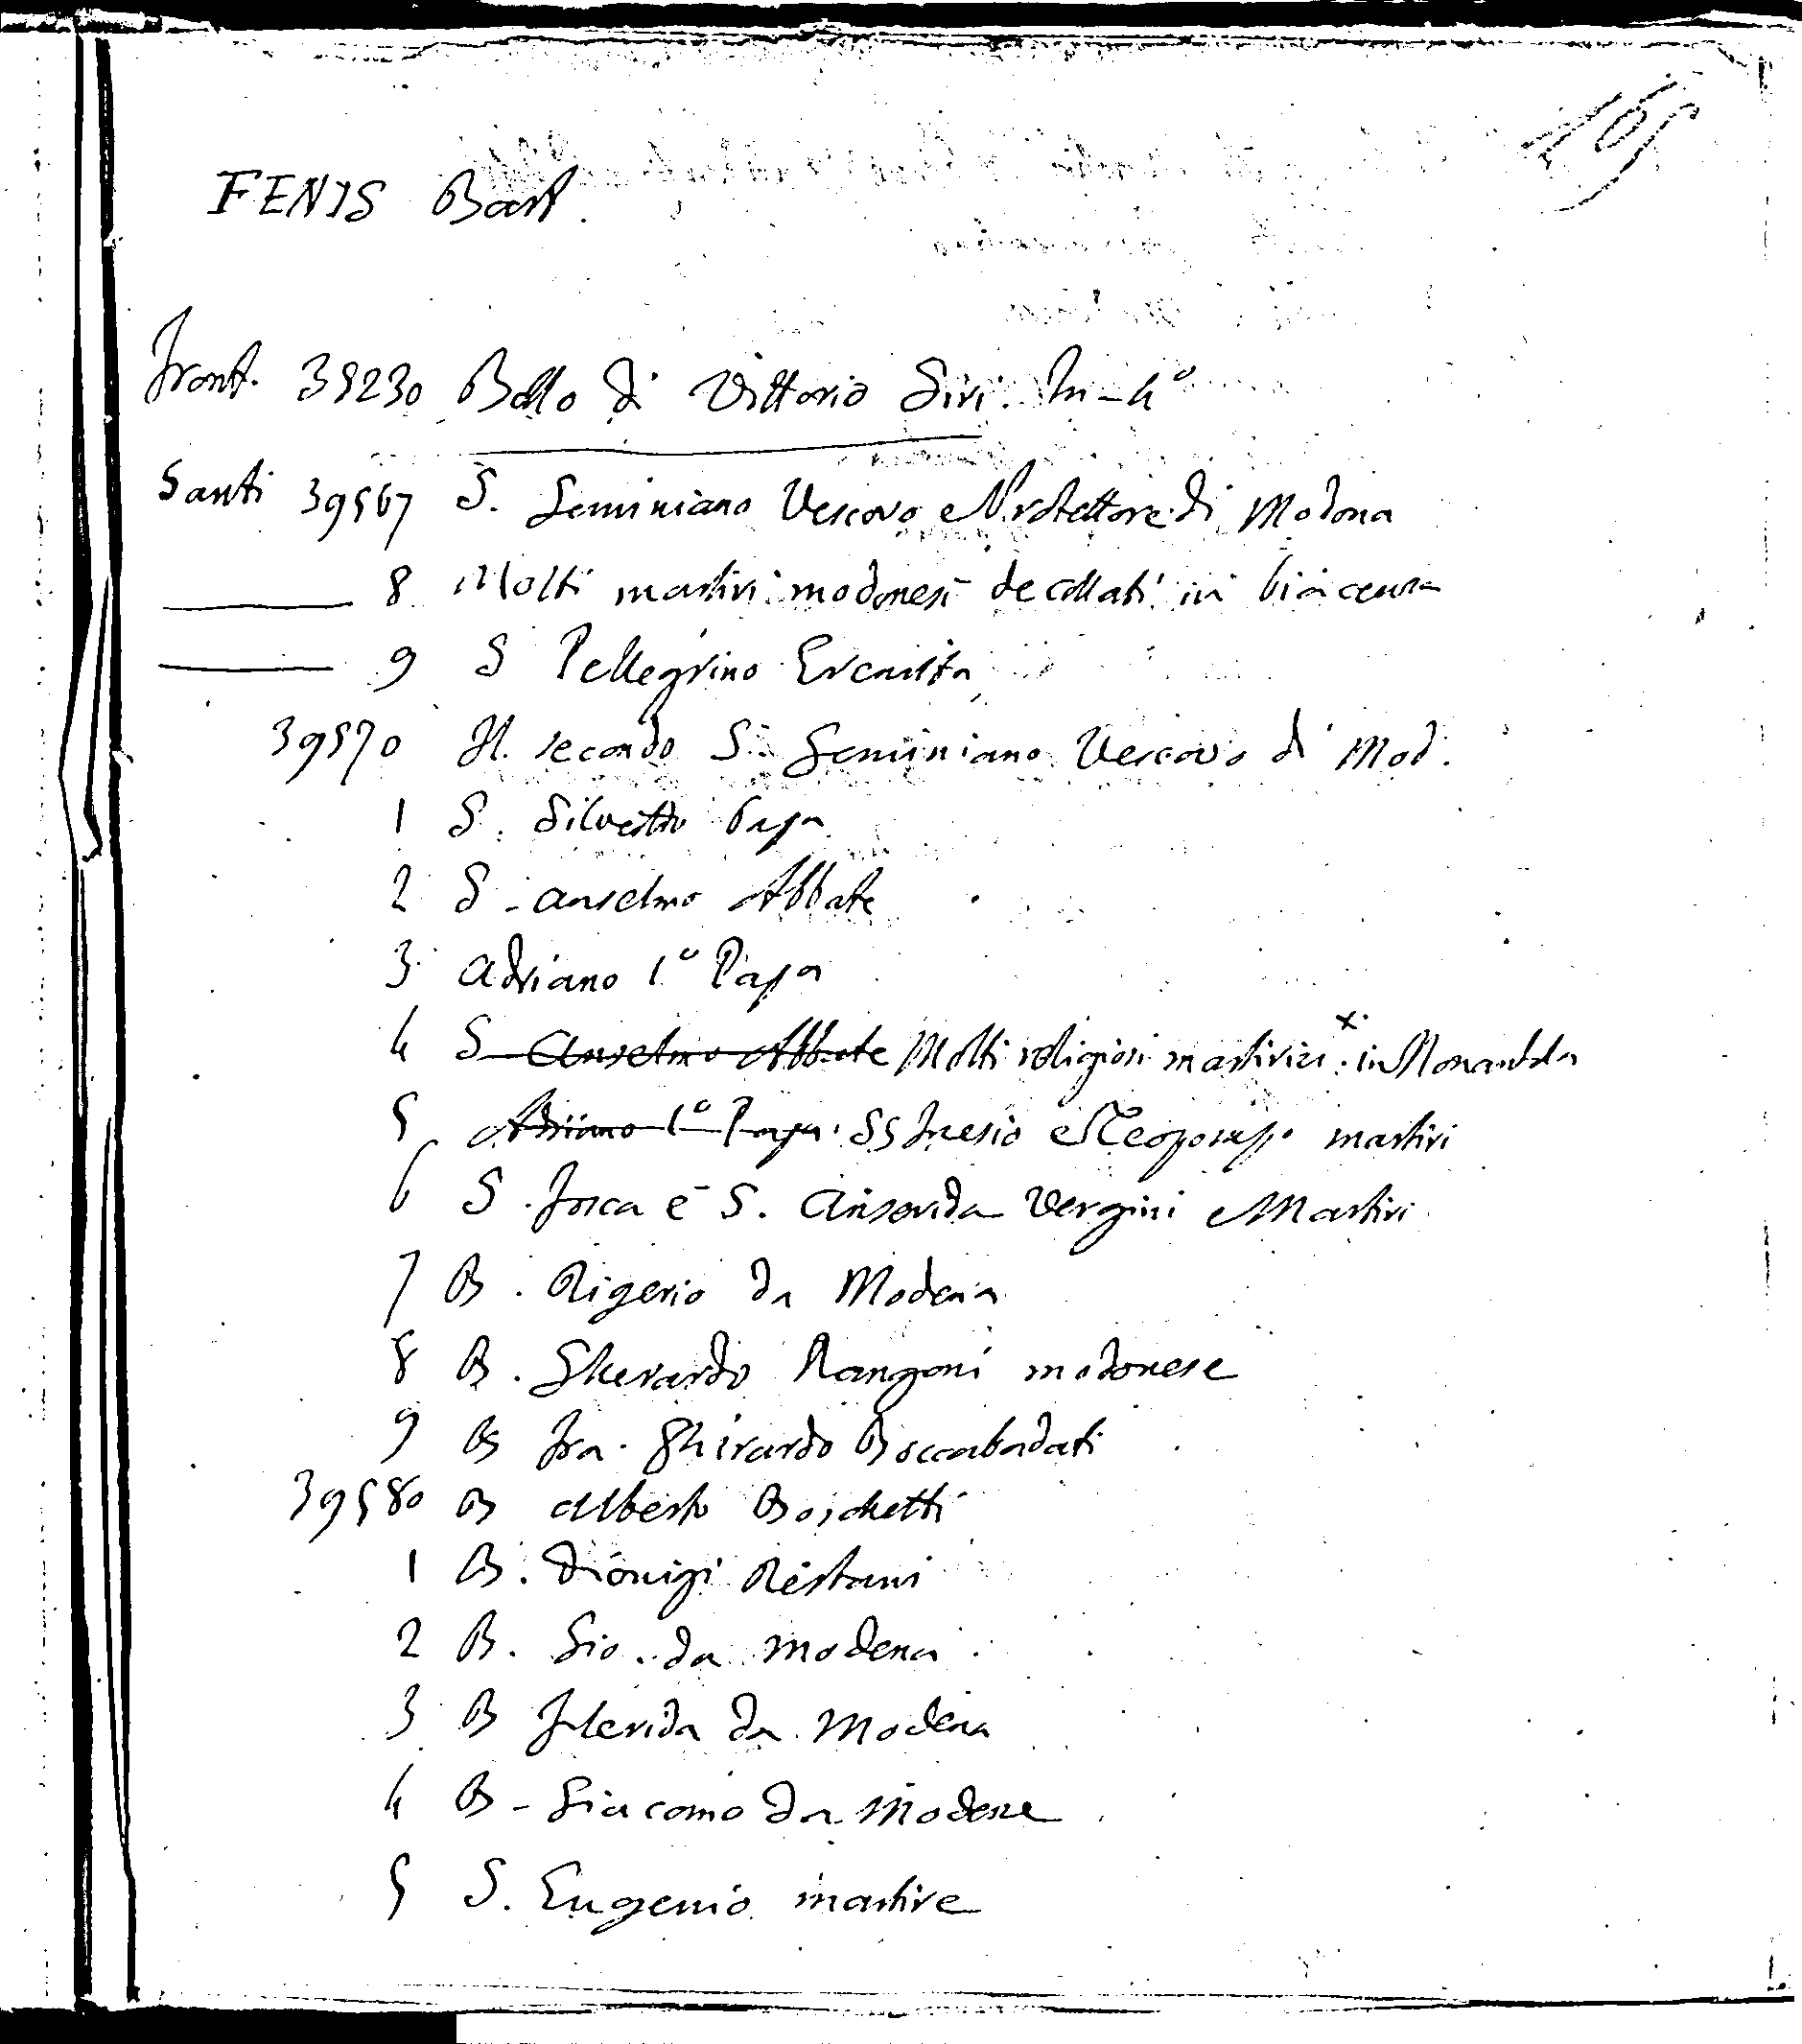 105
FENIS Bart.
Front. 39230 Bollo di Vittorio Siri. In-4°
Santi 39567 S. Geminiano Vescovo e Protettore di Modona
8 Molti martiri modonesi decollati in
9 S Pellegrino
39570 Il secondo S. Geminiano Vescovo di Mod.
1 S. Silvestro Papa
2 S. Anselmo Abbate
3 Adriano 1° Papa
4 S Anselmo Abbate Molti religiosi martirizz. in Nonantola
5 Adriano 1° Papa. SS e martiri
6 S. Fosca e S. Vergini e Martiri
7 B. Rigerio da Modena
8 B. Gherardo Rangoni modonese
9 B Fra. Ghirardo Boccabadati
39580 B Alberto Boschetti
1 B. Dionigi Restani
2 B. Gio. da Modena
3 B da Modena
4 B - Giacomo da Modena
5 S. Eugenio martire